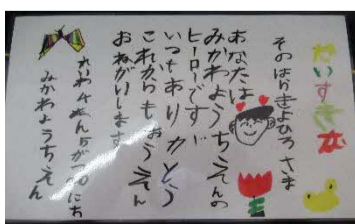 だいすきな
そのはらきよひろ さま
あなたは
みかわようちえんの
ヒーローです!!
いつもありがとう
これからもおうえん
おねがいします
みかわようちえん